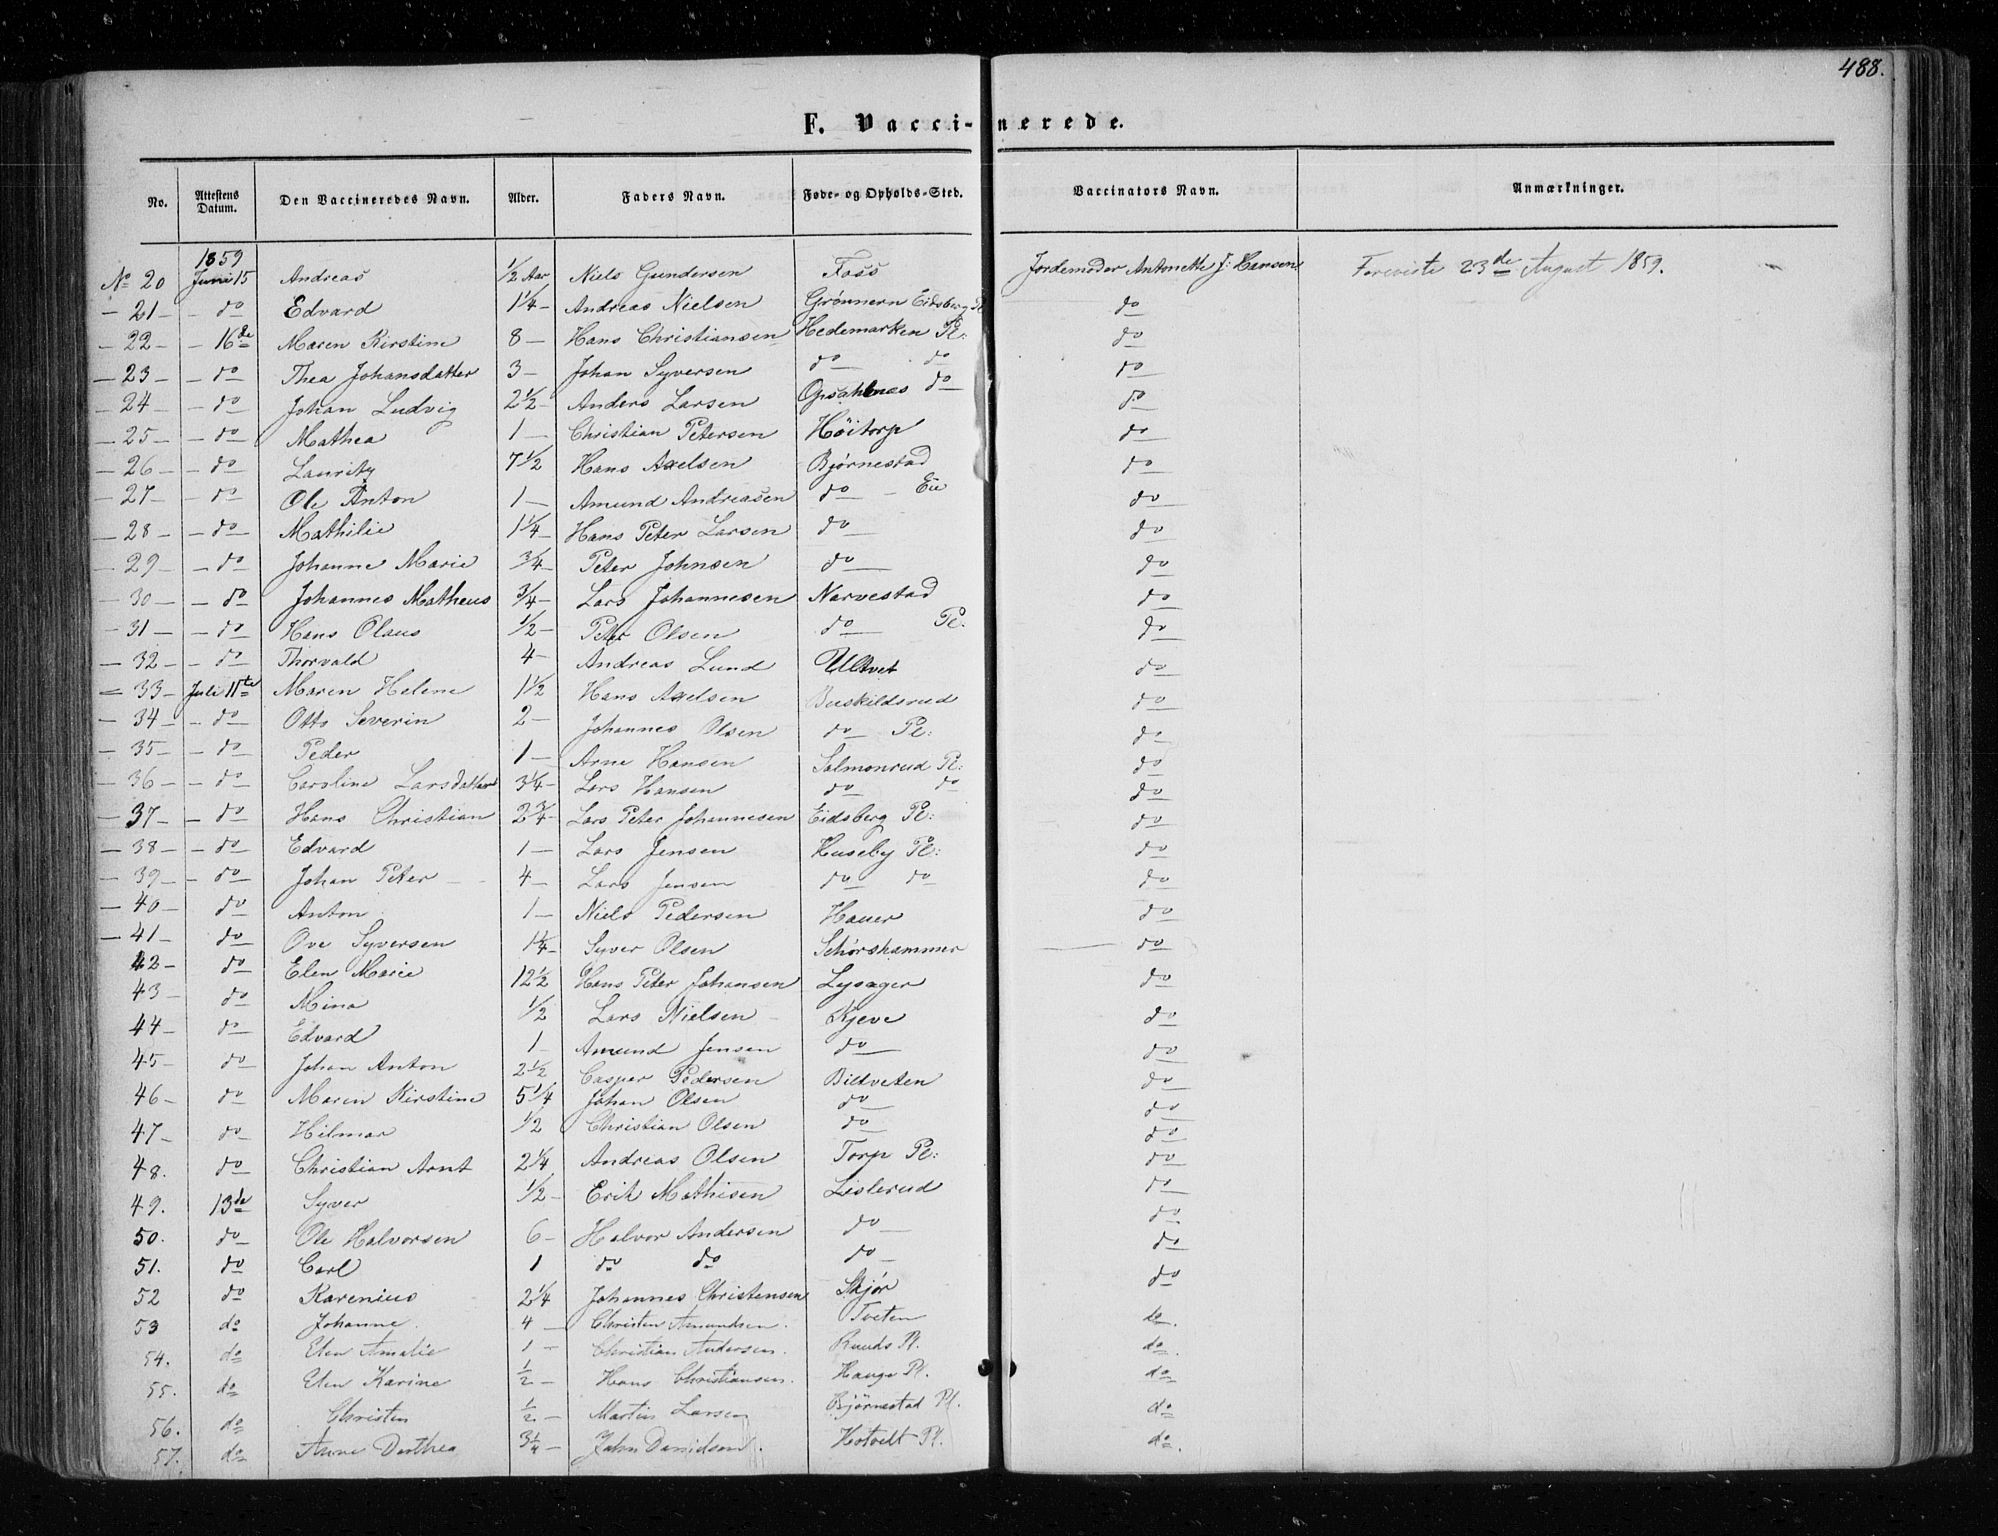 488.
F. Vaccinerede.
No. Attestens Datum. Den Vaccineredes Navn. Alder. Faders Navn. Føde- og Opholds-Sted. Vaccinators Navn. Anmærkninger.
1859
No 20 Juni 15 Andreas 1/2 Aar Niels Gundersen Foss Jordemoder Antonette J: Hansen Foreviste 23de August 1859.
– 21 – – do Edvard 1 1/4 – Andreas Nielsen Grønnern Eidsberg Pl do
– 22 – – 16de Maren Kirstine 8 – Hans Christiansen Hedemarken Pl: do
– 23 – – do Thea Johansdatter 3 – Johan Syversen do do do
– 24 – – do Johan Ludvig 2 1/2 – Anders Larsen Opsahlnes do do
– 25 – – do Mathea 1 – Christian Petersen Høitorp do
– 26 – – do Lauritz 7 1/2 Hans Axelsen Bjørnestad do
– 27 – – do Ole Anton 1 – Amund Andreasen do – Eie do
– 28 – – do Mathilie 1 1/4 – Hans Peter Larsen do do
– 29 – – do Johanne Marie 3/4 – Peter Johnsen do do
– 30 – – do Johannes Matheus 3/4 – Lars Johannesen Narvestad do
– 31 – – do Hans Olaus 1/2 – Peter Olsen do Pl. do
– 32 – – do Thorvald 4 – Andreas Lund Ultvet do
– 33 – Juli 11te Maren Helene 1 1/2 Hans Axelsen Buskildsrud do
– 34 – – do Otto Severin 2 – Johannes Olsen do Pl: do
– 35 – – do Peder 1 – Arne Hansen Salmonrud Pl: do
– 36 – – do Caroline Larsdatter 3 1/4 – Lars Hansen do do do
– 37 – – do Hans Christian 2 3/4 – Lars Peter Johannesen Eidsberg Pl: do
– 38 – – do Edvard 1 – Lars Jensen Huseby Pl: do
– 39 – – do Johan Peter 4 – Lars Jensen do do do
– 40 – do Anton 1 – Niels Pedersen Hauer do
– 41 – do Ove Syversen 1 1/4 – Syver Olsen Schørshammer do
42 – do Elen Marie 12 1/2 Hans Peter Johansen Lysager do
43 – do Mina 1/2 Lars Nielsen Kjeve do
44 – do Edvard 1 – Amund Jensen do do
45 – do Johan Anton 2 1/2 Casper Pedersen Biltveten do
46 – do Maren Kirstine 5 1/4 Johan Olsen do do
47 – do Hilmar 1/2 Christian Olsen do do
48. do Christian Arnt 2 1/4 Andreas Olsen Torp Pl: do
49. 13de Syver 1/2 – Erik Mathisen Lislerud do
50. do Ole Halvorsen 6 – Halvor Andersen do do
51. do Carl 1 do do do do
52 do Karenius 2 1/4 Johannes Christensen Skjør do
53 do Johanne. 4 – Christen Amundsen. Tveten do.
54. do Elen Amalie 1 – Christian Andersen. Ruuds Pl. do.
55. do Elen Karine 1/2 – Hans Christiansen. Hauge Pl. do
56. do Christen 1/2 – Martin Larsen Bjørnestad Pl. do
57. do Anne Dorthea 3 1/4 – John Davidsen. Hotvelt Pl. do.